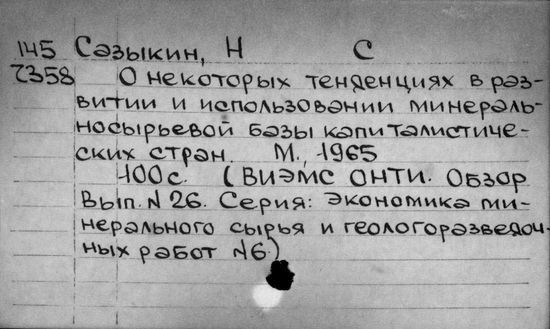 145 Сазыкин, Н С
2358 О некоторых тенденциях в раз-
витии и использовании минераль-
носырьевой базы капиталистиче-
ских стран. М., 1965
100 с. (ВИЭМС ОНТИ. Обзор
Вып. N 26. Серия: экономика ми-
нерального сырья и геологоразведоч-
ных работ N6)